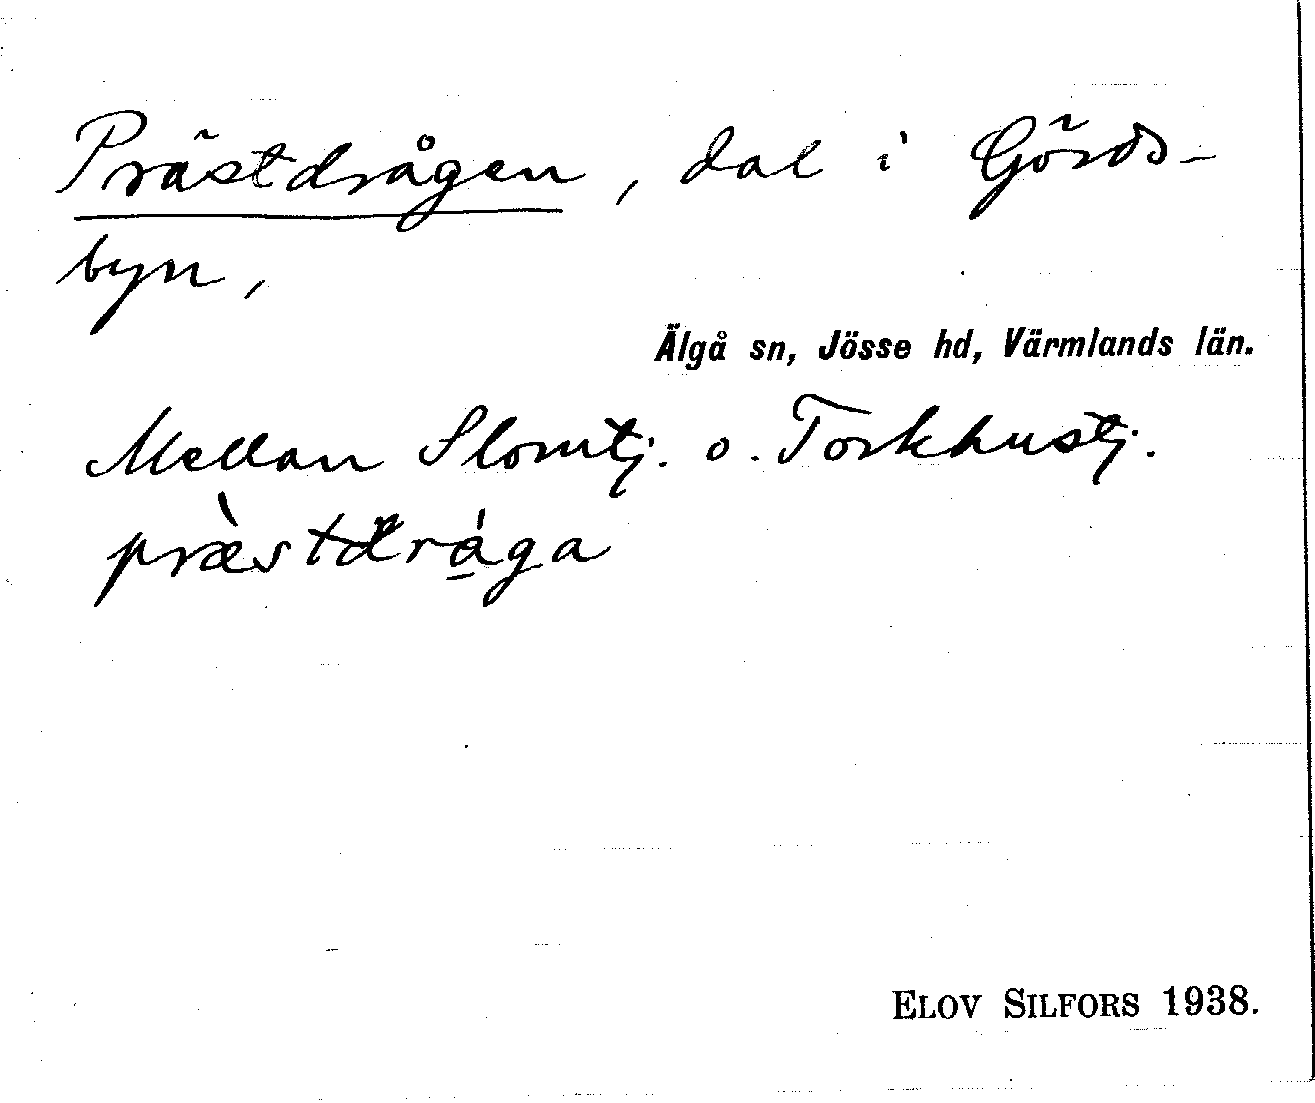 Prästdrågen, dal i Görds-
byn,
Älgå sn, Jösse hd, Värmlands län.
Mellan Slomtj. o. Torkhustj.
præ̀stdrága
ELOV SILFORS 1938.